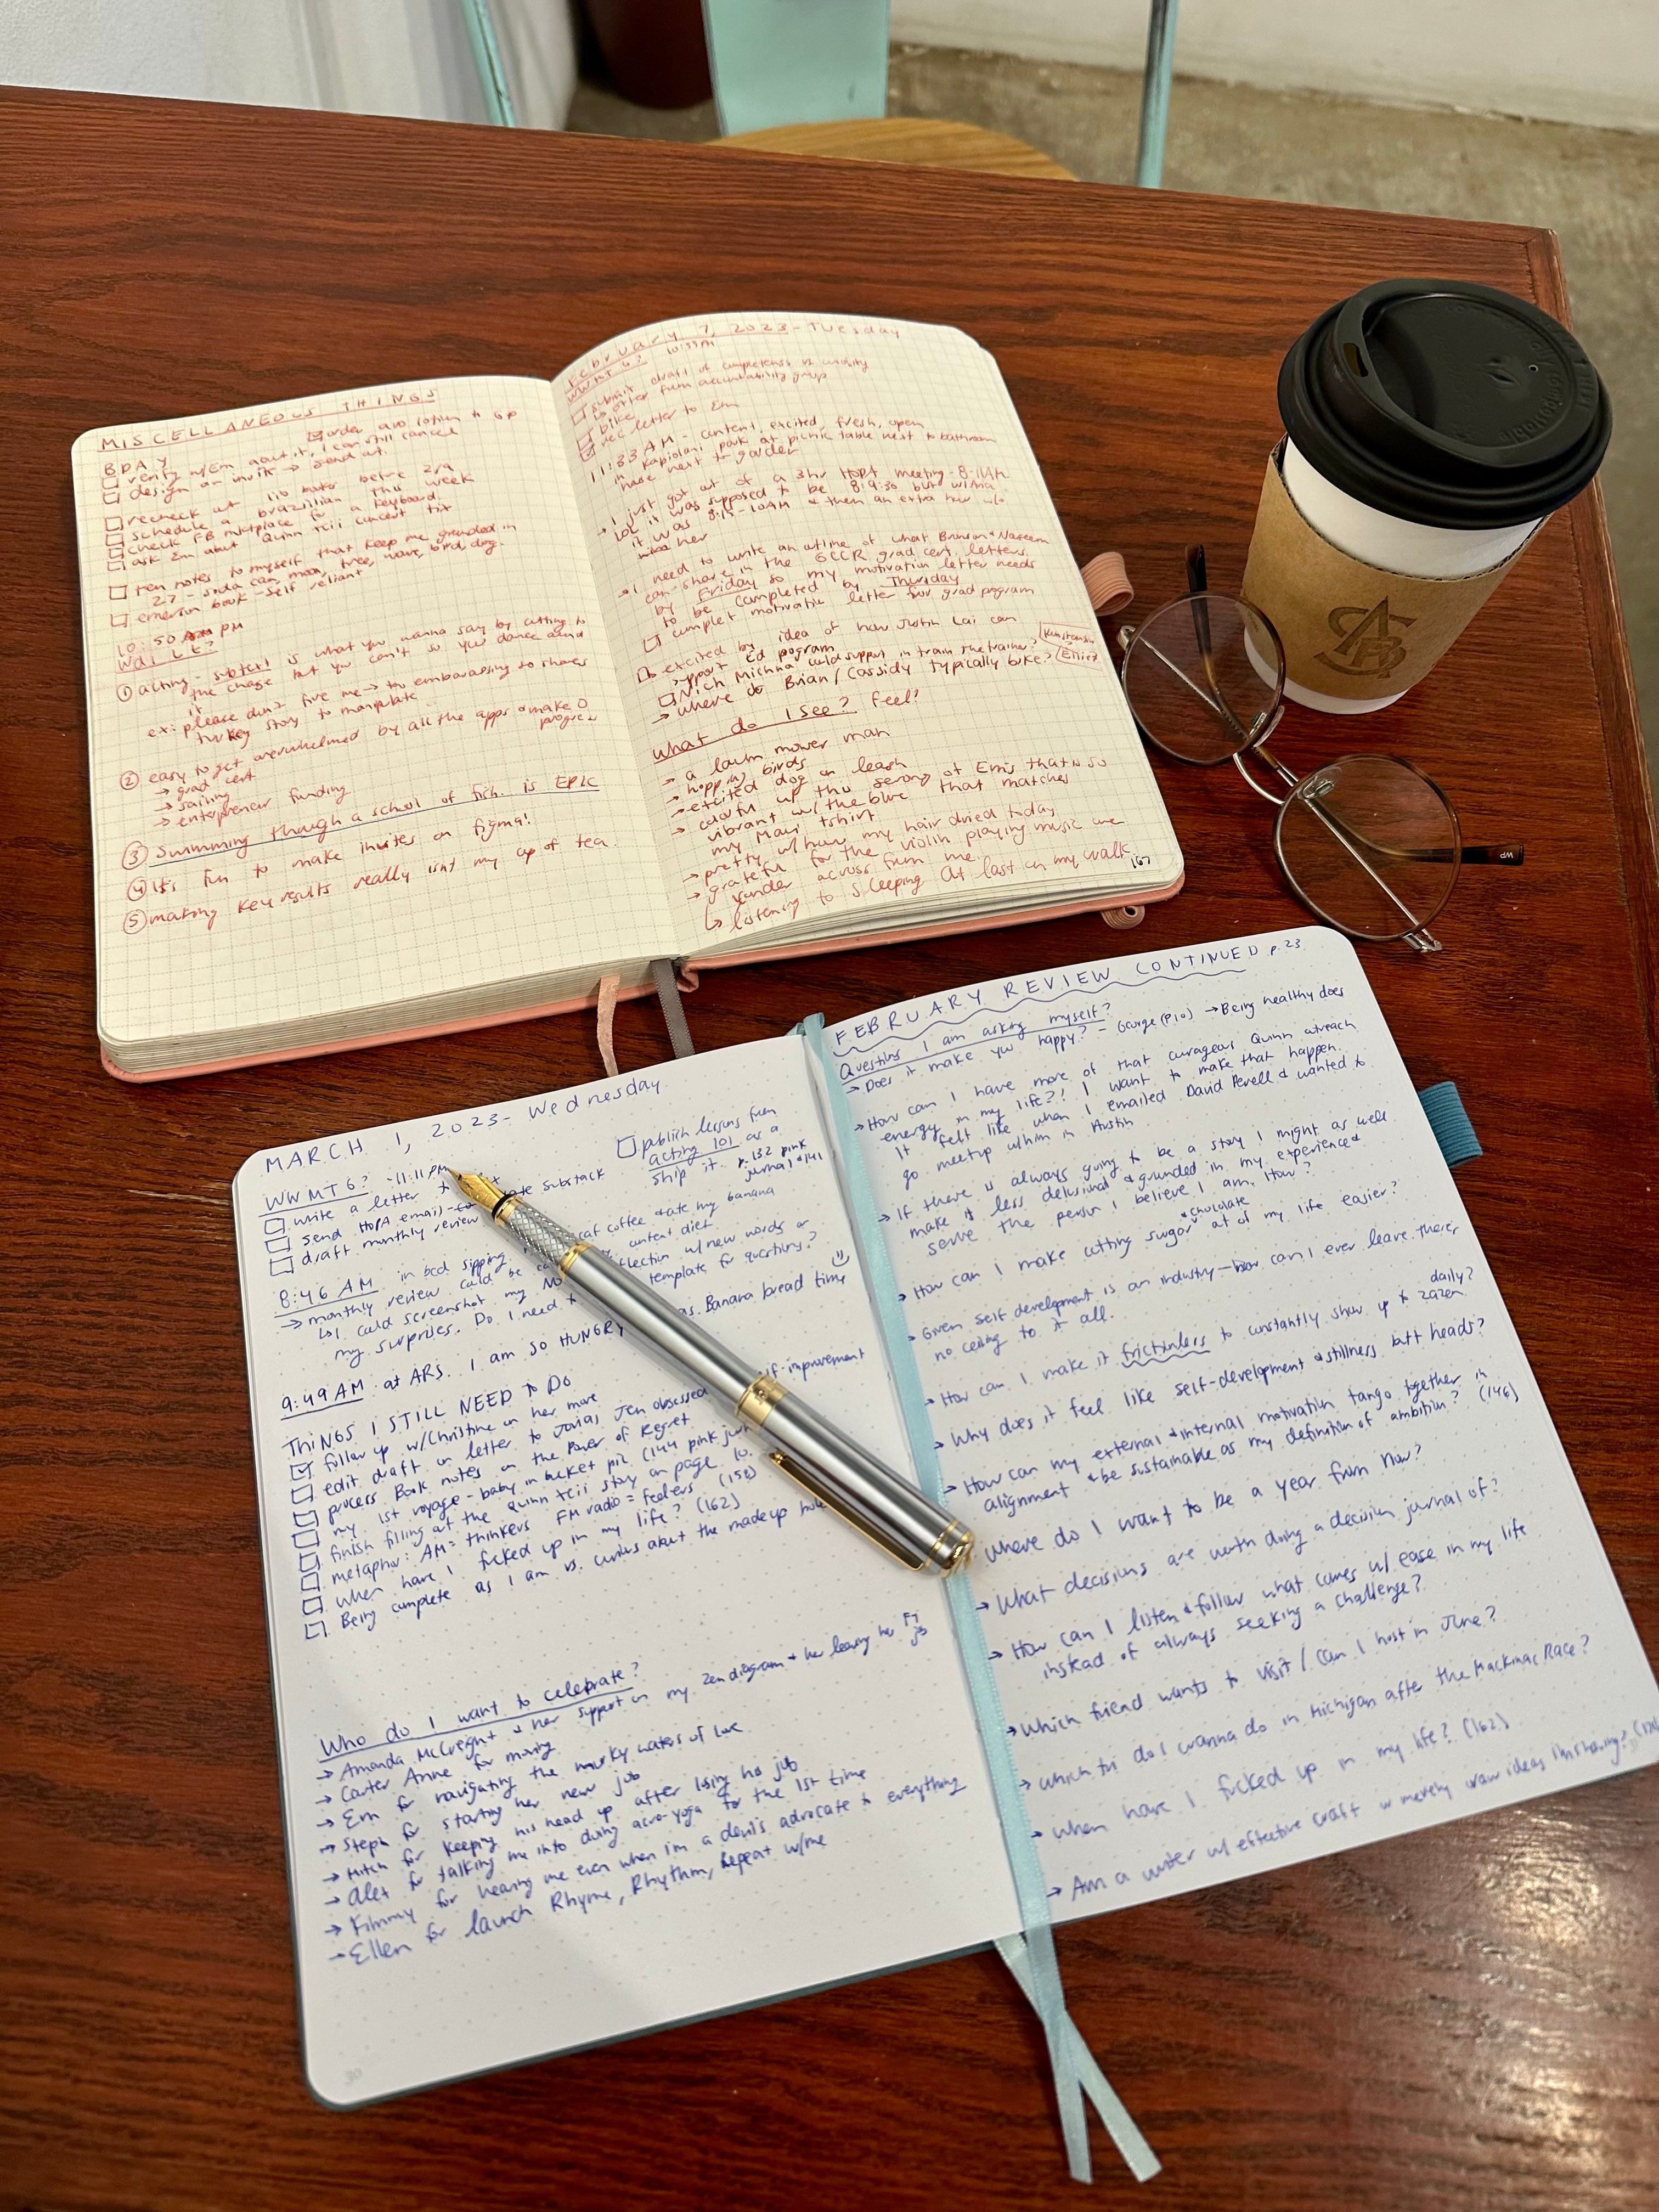 MISCELLANEOUS THINGS
BDAY
order lotion to
verify w/Em about it, I can still cancel
design an invite → send at.
recheck at before 2/9
schedule a brazillian this week
check FB mrktplace for a keyboard.
ask Em about Quinn XCII concert tix
ten notes to myself that keep me grounded in
27 - soda can, moon, tree, wave, bird, dog.
emerson book - self reliant
10:50 PM
① acting - subtext is what you wanna say by cutting to
the chase but you can't so you dance around
it
ex: please don't fire me → too embarassing to share
turkey story to manipulate
② easy to get overwhelmed by all the apps & make 0
progress
→ grad cert
→ sailing
→ enterpreneur funding
③ Swimming through a school of fish is EPIC
④ It's fun to make invites on figma!
⑤ making key results really isn't my cup of tea.
February 7, 2023 - Tuesday
WWMT6? 10:39PM
submit draft of completeness vs curiosity
↳ offer from accountability group
bike
rec letter to Em
11:33 AM - content, excited, fresh, open
in Kapiolani park at picnic table next to bathroom
next to garden
→ I just got out of a 3hr HOPA meeting - 8-11AM.
LOL it was supposed to be 8-9:30 but
it was 8:15-10AM & then an extra hour w/o
her
→ I need to write an outline of what Branson & Nazeem
can share in the GCCR grad cert. letters
by Friday so my motivation letter needs
to be completed by Thursday
complete motivation letter for grad program
excited by idea of how Justin Lai can
support Ed program
Nich Michna could support in train the trainer?
Elliot
→ where do Brian/Cassidy typically bike?
What do I see? Feel?
→ a lawn mower man
→ hopping birds
→ excited dog on leash
→ colorful up thu serong of Em's that is so
vibrant w/ the blue that matches
my Maui tshirt
→ pretty w/how my hair dried today
→ grateful for the violin playing music
yonder across from me
↳ listening to Sleeping At last on my walk
167
MARCH 1, 2023 - Wednesday
WWMT6? - 11:11 PM
publish lessons from
acting 101 as a
ship it. p.132 pink
journal & 141
write a letter
send HOPA email substack
draft monthly review
8:46 AM in bed sipping coffee & ate my banana
→ monthly review could be content diet
↳ I could screenshot my reflection w/ new words or
my surprises. Do I need template for questions?
9:49 AM at ARS. I am so HUNGRY Banana bread time
THINGS I STILL NEED TO DO
follow up w/Christine on her move
edit draft on letter to Jonas, Jen obsessed self-improvement
process Book notes on the Power of Regret
my 1st voyage - baby in bucket pic (144 pink
finish filling at the Quinn XCII story on page
metaphor: AM = thinkers FM radio = feelers (158)
when have I fucked up in my life? (162)
Being complete as I am vs. curious about the made up
Who do I want to celebrate?
→ Amanda McCreight & her support on my Zen diagram & her leaving her
→ Carter Anne for moving
→ Em for navigating the murky waters of love
→ Steph for starting her new job
→ Mitch for keeping his head up after losing his job
→ Alex for talking me into doing acro-yoga for the 1st time
→ Kimmy for hearing me even when I'm a devil's advocate to everything
→ Ellen for launch Rhyme, Rhythm, Repeat w/me
30
FEBRUARY REVIEW CONTINUED p.23
Questions I am asking myself?
→ Does it make you happy? - George (P10) → Being healthy does
→ How can I have more of that courageous Quinn outreach
energy in my life?! I want to make that happen.
It felt like when I emailed David Perell & wanted to
go meetup w/him in Austin
→ If there is always going to be a story I might as well
make it less delusional & grounded in my experience &
serve the person I believe I am. How?
& chocolate
→ How can I make cutting sugar out of my life easier?
→ Given self development is an industry - how can I ever leave. there's
no ceiling to it all.
daily?
→ How can I make it frictionless to constantly show up to zazen
→ Why does it feel like self-development & stillness butt heads?
→ How can my external & internal motivation tango together in
alignment & be sustainable as my definition of ambition? (146)
→ where do I want to be a year from now?
→ What decisions are worth doing a decision journal of?
→ How can I listen & follow what comes w/ ease in my life
instead of always seeking a challenge?
→ Which friend wants to visit / can I host in June?
→ which tri do I wanna do in Michigan after the Mackinac Race?
→ when have I fucked up in my life? (162)
→ Am a writer w/ effective craft or merely raw ideas I'm sharing?
WP